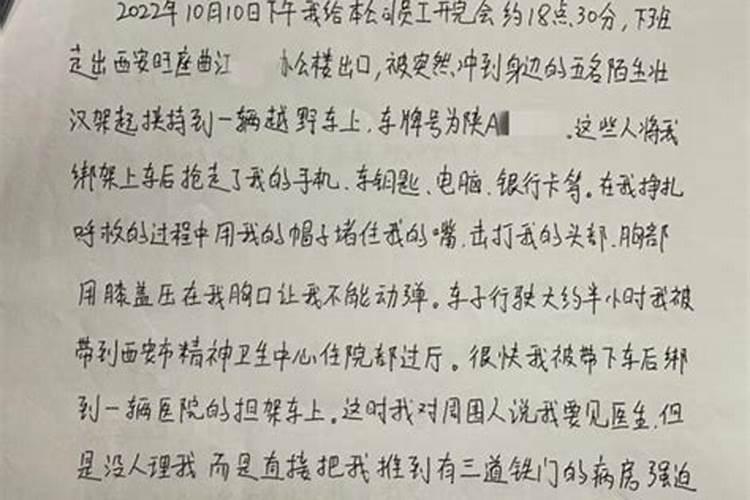 2022年10月10日下午我给本公司员工开完会约18点30分，下班
走出西安旺座曲江 办公楼出口，被突然冲到身边的五名陌生壮
汉架起挟持到一辆越野车上，车牌号为陕A 。这些人将我
绑架上车后抢走了我的手机、车钥匙、电脑、银行卡等。在我挣扎
呼救的过程中用我的帽子堵住我的嘴，击打我的头部、胸部
用膝盖压在我胸口让我不能动弹。车子行驶大约半小时我被
带到西安市精神卫生中心住院部过厅。很快我被带下车后绑
到一辆医院的担架车上。这时我对周围人说我要见医生，但
是没人理我而是直接把我推到有三道铁门的病房强迫